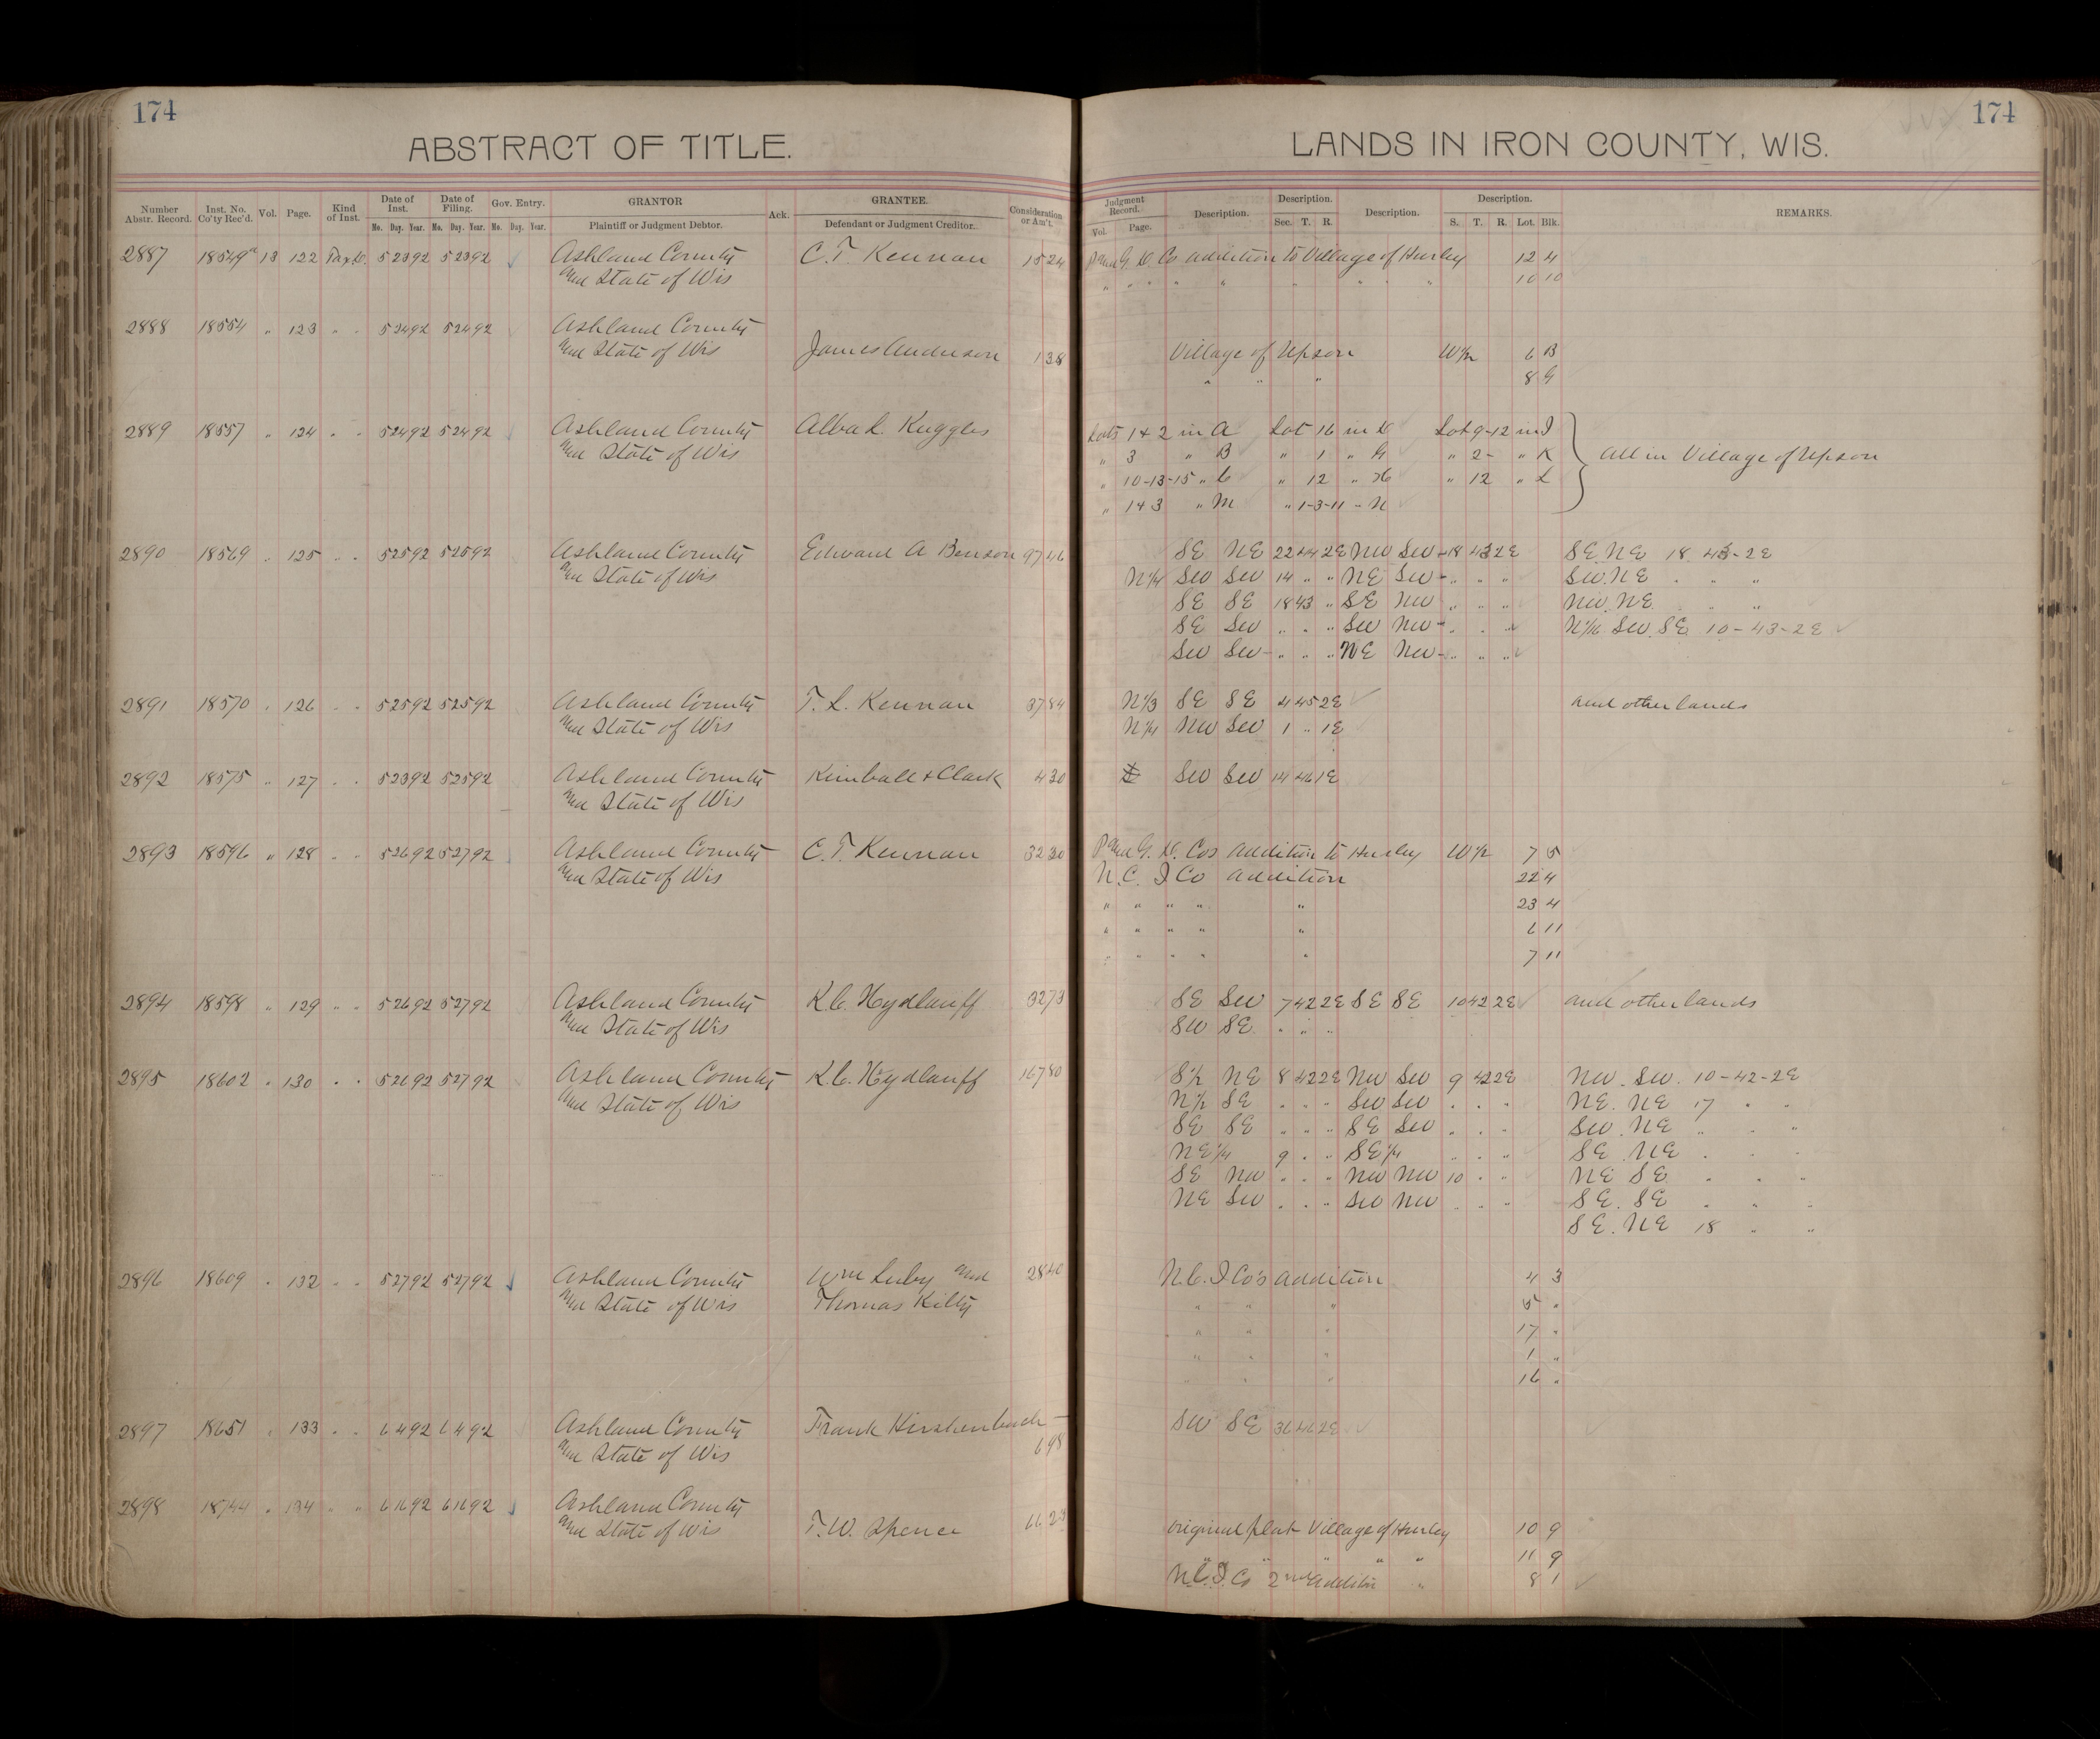 174
174
ABSTRACT OF TITLE.
LANDS IN IRON COUNTY, WIS.
Number Abstr. Record. Inst. No. Co'ty Rec'd. Vol. Page. Kind of Inst. Date of Inst. Mo. Day. Year. Date of Filing. Mo. Day. Year. Gov. Entry. Mo. Day. Year. GRANTOR Plaintiff or Judgment Debtor. Ack. GRANTEE. Defendant or Judgment Creditor. Consideration or Am't.
Judgment Record. Vol. Page. Description. Description. Sec. T. R. Description. Description. S. T. R. Lot. Blk. REMARKS.
2887 18549a 13 122 Tax D. 5 23 92 5 23 92 Ashland County C. T. Kennan 15 24 P. and G. D. Co addition to Village of Hurley 12 4
and State of Wis " " " " " " " " " 10 10
2888 18554 " 123 " " 5 24 92 5 24 92 Ashland County
and State of Wis James Anderson 1 38 Village of Upson W 1/2 6 B
" " " 8 G
2889 18557 " 124 " " 5 24 92 5 24 92 Ashland County Alba L. Ruggles Lots 1 + 2 in A Lot 16 in D Lot 9-12 in I
and State of Wis " 3 " B " 1 " G " 2- " K All in Village of Upson
" 10-13-15 " C " 12 " H " 12 " L
" 1 + 3 " M " 1-3-11 " N
2890 18569 " 125 " " 5 25 92 5 25 92 Ashland County Edward A Benson 97 46 SE NE 22 44 2E NW SW - 18 43 2E SE. NE 18 43-2E
and State of Wis N 1/4 SW SW 14 " " NE SW - " " " SW. NE " " "
SE SE 18 43 " SE NW " " " NW. NE. " "
SE SW " " " SW NW - " " " N 1/16 SW. SE. 10-43-2E
SW SW - " " " NE NW - " " "
2891 18570 " 126 " " 5 25 92 5 25 92 Ashland County T. L. Kennan 37 84 N 1/3 SE SE 4 45 2E and other lands
and State of Wis N 1/4 NW SW 1 " 1E
2892 18575 " 127 " " 5 23 92 5 25 92 Ashland County Kimball + Clark 4 30 SW SW 14 46 1E
and State of Wis
2893 18596 " 128 " " 5 26 92 5 27 92 Ashland County C. T. Kennan 32 30 P. and G. D. Cos addition to Hurley W 1/2 7 5
and State of Wis N. C. I Co addition 22 4
" " " " " 23 4
" " " " " 6 11
" " " " " 7 11
2894 18598 " 129 " " 5 26 92 5 27 92 Ashland County K. C. Heydlauff 32 73 SE SW 7 42 2E SE SE 10 42 2E and other lands
and State of Wis SW SE. " " "
2895 18602 " 130 " " 5 26 92 5 27 92 Ashland County K. C. Heydlauff 167 80 S 1/2 NE 8 42 2E NW SW 9 42 2E NW. SW. 10-42-2E
and State of Wis N 1/2 SE " " " SW SW " " " NE. NE 17 " "
SE SE " " " SE SW " " " SW. NE " " "
NE 1/4 9 " " SE 1/4 " " " SE. NE " " "
SE NW " " " NW NW 10 " " NE SE " " "
NE SW " " " SW NW " " " SE. SE " " "
SE. NE 18 " "
2896 18609 " 132 " " 5 27 92 5 27 92 Ashland County Wm Luby and 28 40 N. C. I Co's addition 4 3
and State of Wis Thomas Kilty " " " 5 "
" " " 17 "
" " " 1 "
" " " 16 "
2897 18651 " 133 " " 6 4 92 6 4 92 Ashland County Frank SW SE 36 46 2E
and State of Wis 6 98
2898 18744 " 134 " " 6 16 92 6 16 92 Ashland County
and State of Wis T. W. Spence original plat Village of Hurley 10 9
" " " " " 11 9
N. C. I. Co 2nd addition " 8 1